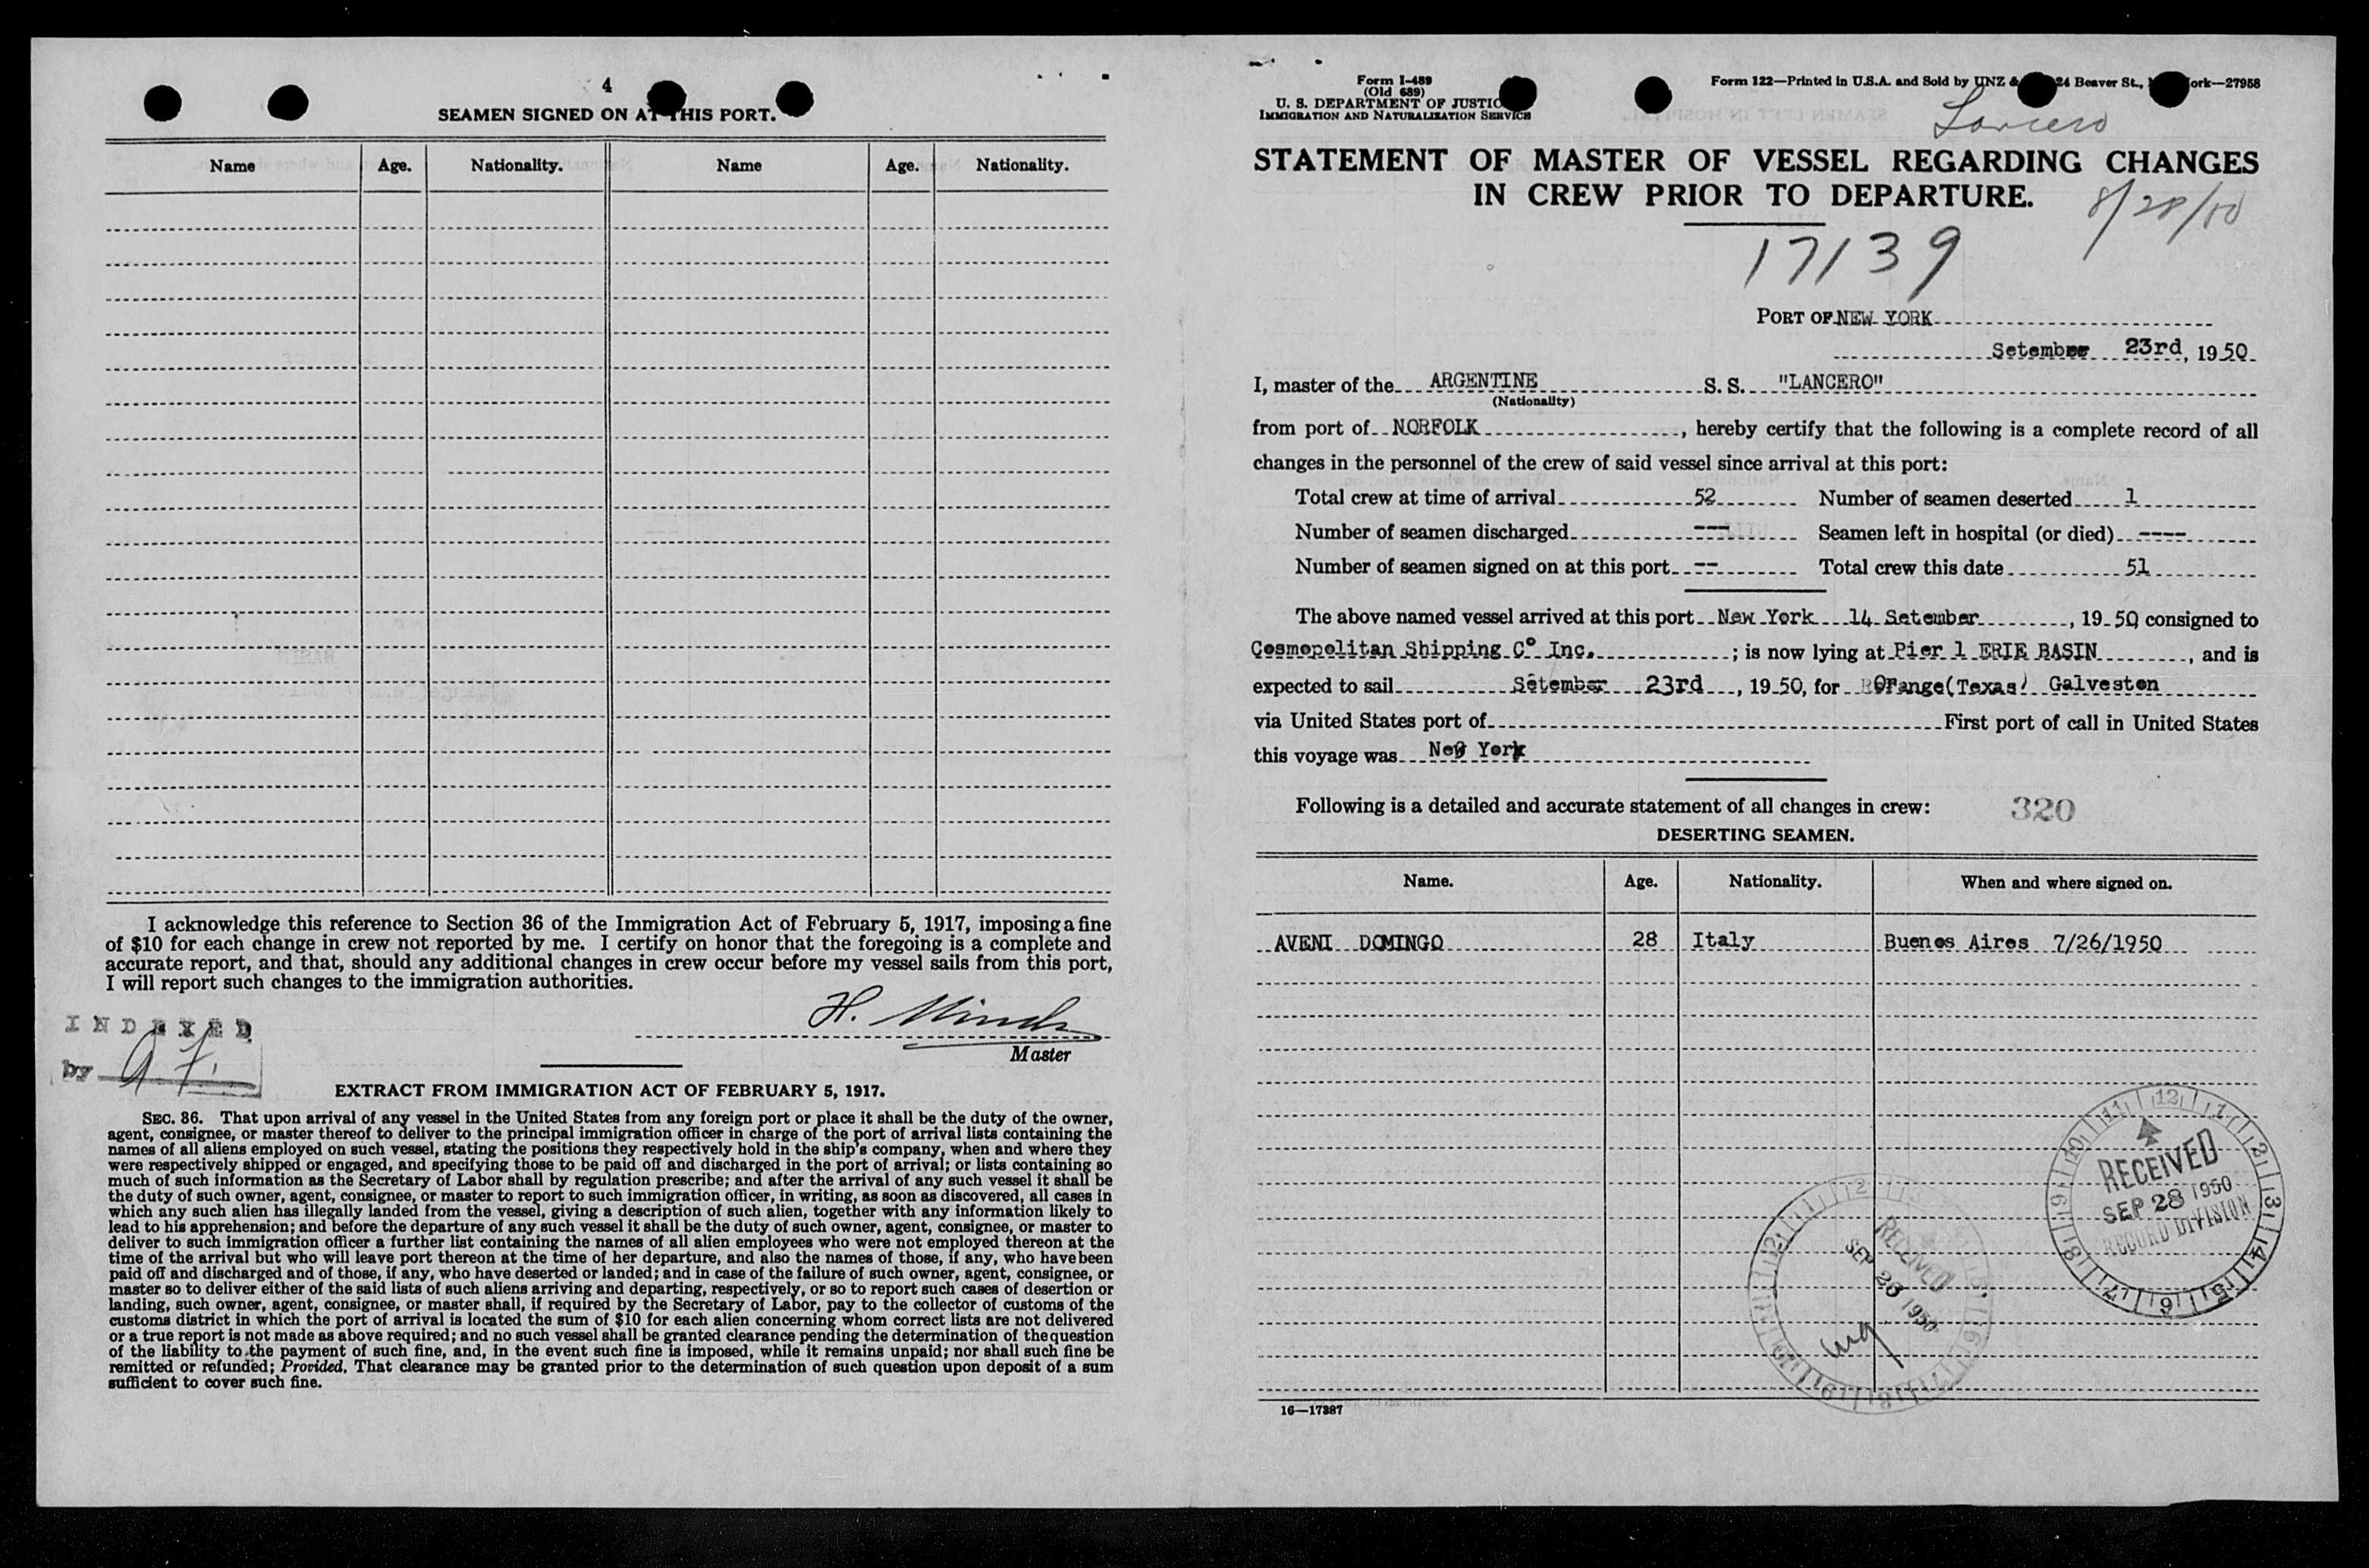 4
SEAMEN SIGNED ON AT THIS PORT.
Name Age. Nationality. Name Age. Nationality.
I acknowledge this reference to Section 36 of the Immigration Act of February 5, 1917, imposing a fine
of $10 for each change in crew not reported by me. I certify on honor that the foregoing is a complete and
accurate report, and that, should any additional changes in crew occur before my vessel sails from this port,
I will report such changes to the immigration authorities.
INDEXED
by
H.
Master
EXTRACT FROM IMMIGRATION ACT OF FEBRUARY 5, 1917.
SEC. 36. That upon arrival of any vessel in the United States from any foreign port or place it shall be the duty of the owner,
agent, consignee, or master thereof to deliver to the principal immigration officer in charge of the port of arrival lists containing the
names of all aliens employed on such vessel, stating the positions they respectively hold in the ship's company, when and where they
were respectively shipped or engaged, and specifying those to be paid off and discharged in the port of arrival; or lists containing so
much of such information as the Secretary of Labor shall by regulation prescribe; and after the arrival of any such vessel it shall be
the duty of such owner, agent, consignee, or master to report to such immigration officer, in writing, as soon as discovered, all cases in
which any such alien has illegally landed from the vessel, giving a description of such alien, together with any information likely to
lead to his apprehension; and before the departure of any such vessel it shall be the duty of such owner, agent, consignee, or master to
deliver to such immigration officer a further list containing the names of all alien employees who were not employed thereon at the
time of the arrival but who will leave port thereon at the time of her departure, and also the names of those, if any, who have been
paid off and discharged and of those, if any, who have deserted or landed; and in case of the failure of such owner, agent, consignee, or
master so to deliver either of the said lists of such aliens arriving and departing, respectively, or so to report such cases of desertion or
landing, such owner, agent, consignee, or master shall, if required by the Secretary of Labor, pay to the collector of customs of the
customs district in which the port of arrival is located the sum of $10 for each alien concerning whom correct lists are not delivered
or a true report is not made as above required; and no such vessel shall be granted clearance pending the determination of the question
of the liability to the payment of such fine, and, in the event such fine is imposed, while it remains unpaid; nor shall such fine be
remitted or refunded; Provided, That clearance may be granted prior to the determination of such question upon deposit of a sum
sufficient to cover such fine.
Form I-489
(Old 689)
U. S. DEPARTMENT OF JUSTIC
IMMIGRATION AND NATURALIZATION SERVICE
Form 122—Printed in U.S.A. and Sold by UNZ & 24 Beaver St., ork—27958
Lancero
STATEMENT OF MASTER OF VESSEL REGARDING CHANGES
IN CREW PRIOR TO DEPARTURE.
17139
PORT OF NEW YORK
Setember 23rd, 1950
I, master of the ARGENTINE S. S. "LANCERO"
(Nationality)
from port of NORFOLK, hereby certify that the following is a complete record of all
changes in the personnel of the crew of said vessel since arrival at this port:
Total crew at time of arrival 52 Number of seamen deserted 1
Number of seamen discharged --- Seamen left in hospital (or died) ----
Number of seamen signed on at this port -- Total crew this date 51
The above named vessel arrived at this port New York 14 Setember, 1950 consigned to
Cosmopolitan Shipping Cº Inc.; is now lying at Pier 1 ERIE BASIN, and is
expected to sail Setember 23rd, 1950, for Orange(Texas) Galveston
via United States port of First port of call in United States
this voyage was New York
Following is a detailed and accurate statement of all changes in crew: 320
DESERTING SEAMEN.
Name. Age. Nationality. When and where signed on.
AVENI DOMINGO 28 Italy Buenos Aires 7/26/1950
12 1 2 3 4 5 6 7 8 9 10 11
RECEIVED
SEP 28 1950
RECORD DIVISION
RECEIVED
SEP 1950
16—17387